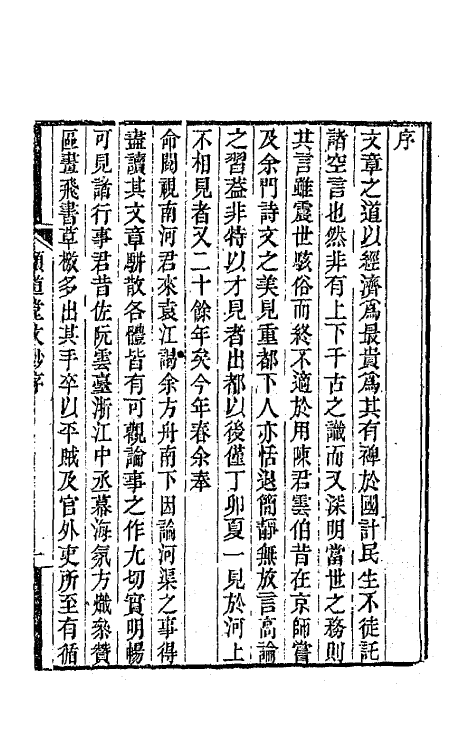 序
文章之道以經濟爲最貴爲其有裨於國計民生不徒託
諸空言也然非有上下千古之識而又深明當世之務則
其言雖震世駭俗而終不適於用陳君雲伯昔在京師嘗
及余門詩文之美見重都下人亦恬退簡靜無放言高論
之習葢非特以才見者出都以後僅丁卯夏一見於河上
不相見者又二十餘年矣今年春余奉
命閱視南河君來袁江謁余方舟南下因論河渠之事得
盡讀其文章駢散各體皆有可觀論事之作尤切實明暢
可見諸行事君昔佐阮雲臺浙江中丞幕海氛方熾參贊
區畫飛書草檄多出其手卒以平賊及官外吏所至有循
頤道堂文鈔序
一